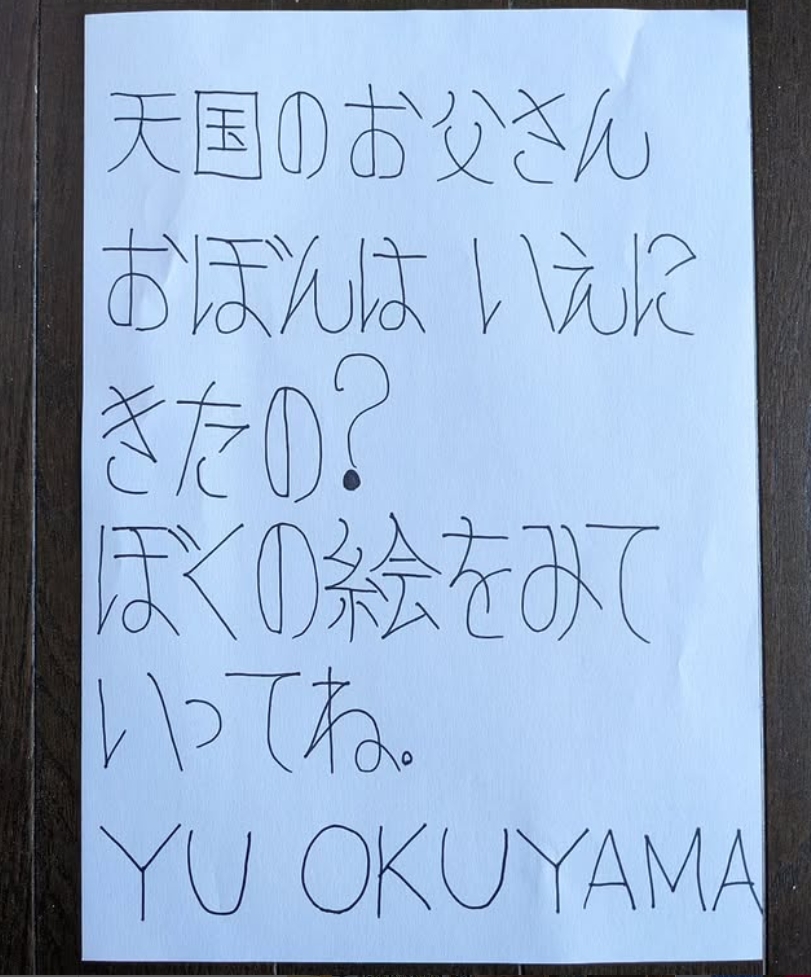 天国のお父さん
おぼんは いえに
きたの?
ぼくの絵をみて
いってね。
YU OKUYAMA